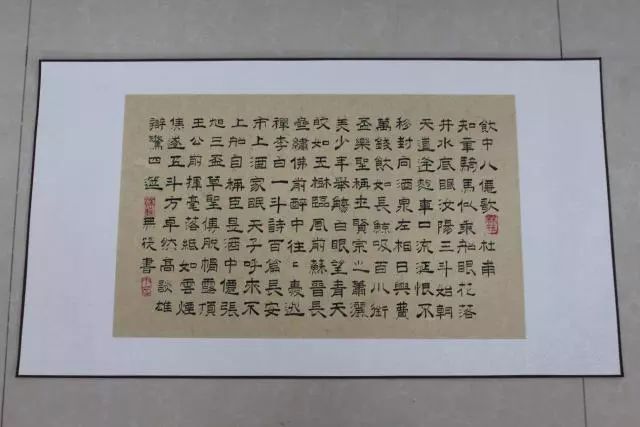 飲中八僊歌 杜甫
知章騎馬似乘船眼花落
井水底眠汝陽三斗始朝
天道逢麴車口流涎恨不
移封向酒泉左相日興費
萬錢飲如長鯨吸百川銜
盃樂聖稱世賢宗之蕭灑
美少年舉觴白眼望青天
皎如玉樹臨風前蘇晉長
齋繡佛前醉中往〻愛逃
禪李白一斗詩百篇長安
市上酒家眠天子呼來不
上船自稱臣是酒中僊張
旭三盃草聖傳脫帽露頂
王公前揮毫落紙如雲煙
焦遂五斗方卓然高談雄
辯驚四筵 書